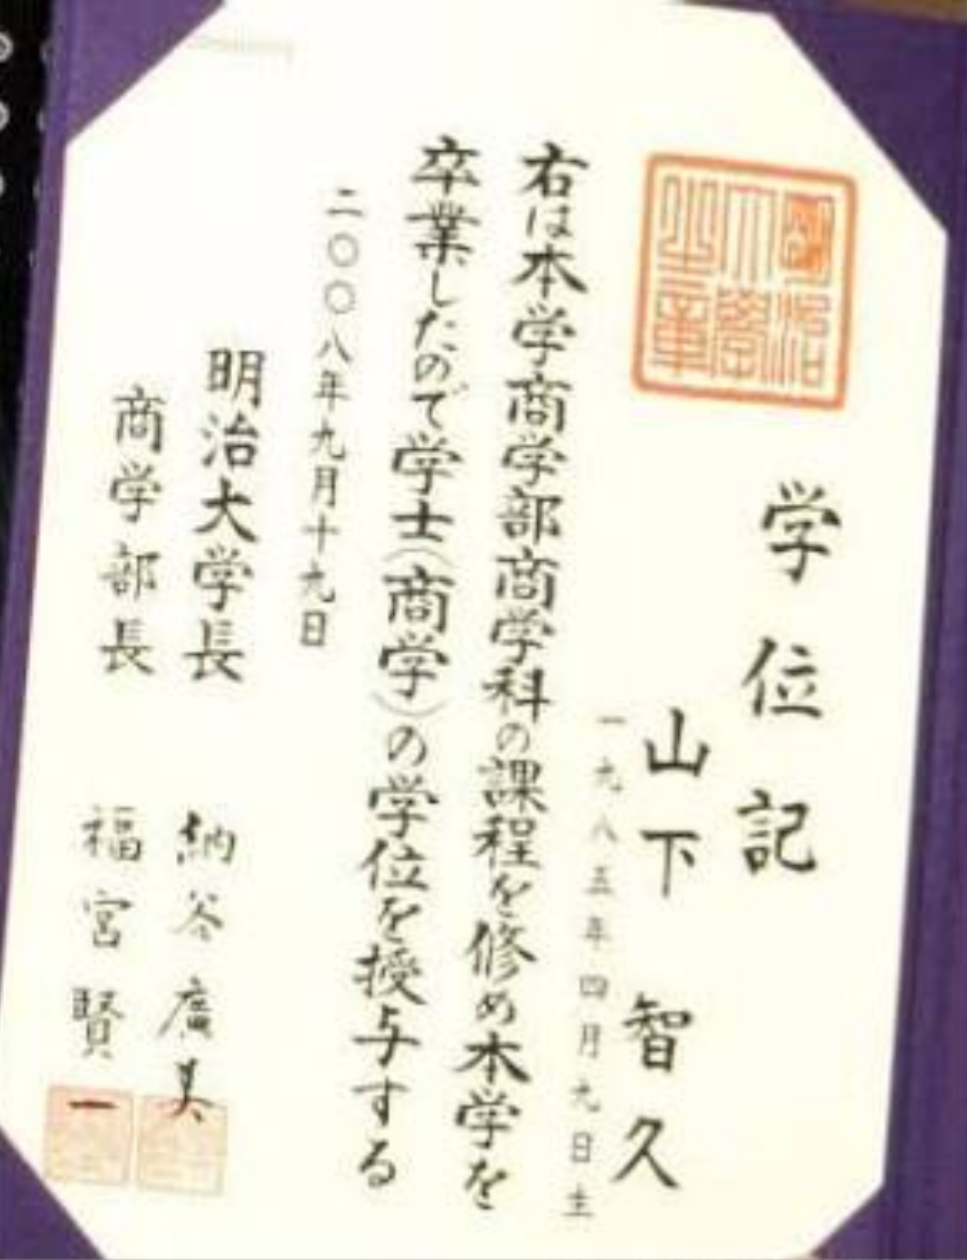 学位記
山下智久
一九八五年四月九日生
右は本学商学部商学科の課程を修め本学を
卒業したので学士(商学)の学位を授与する
二〇〇八年九月十九日
明治大学長 納谷廣美
商学部長 福宮賢一
明治大學之章